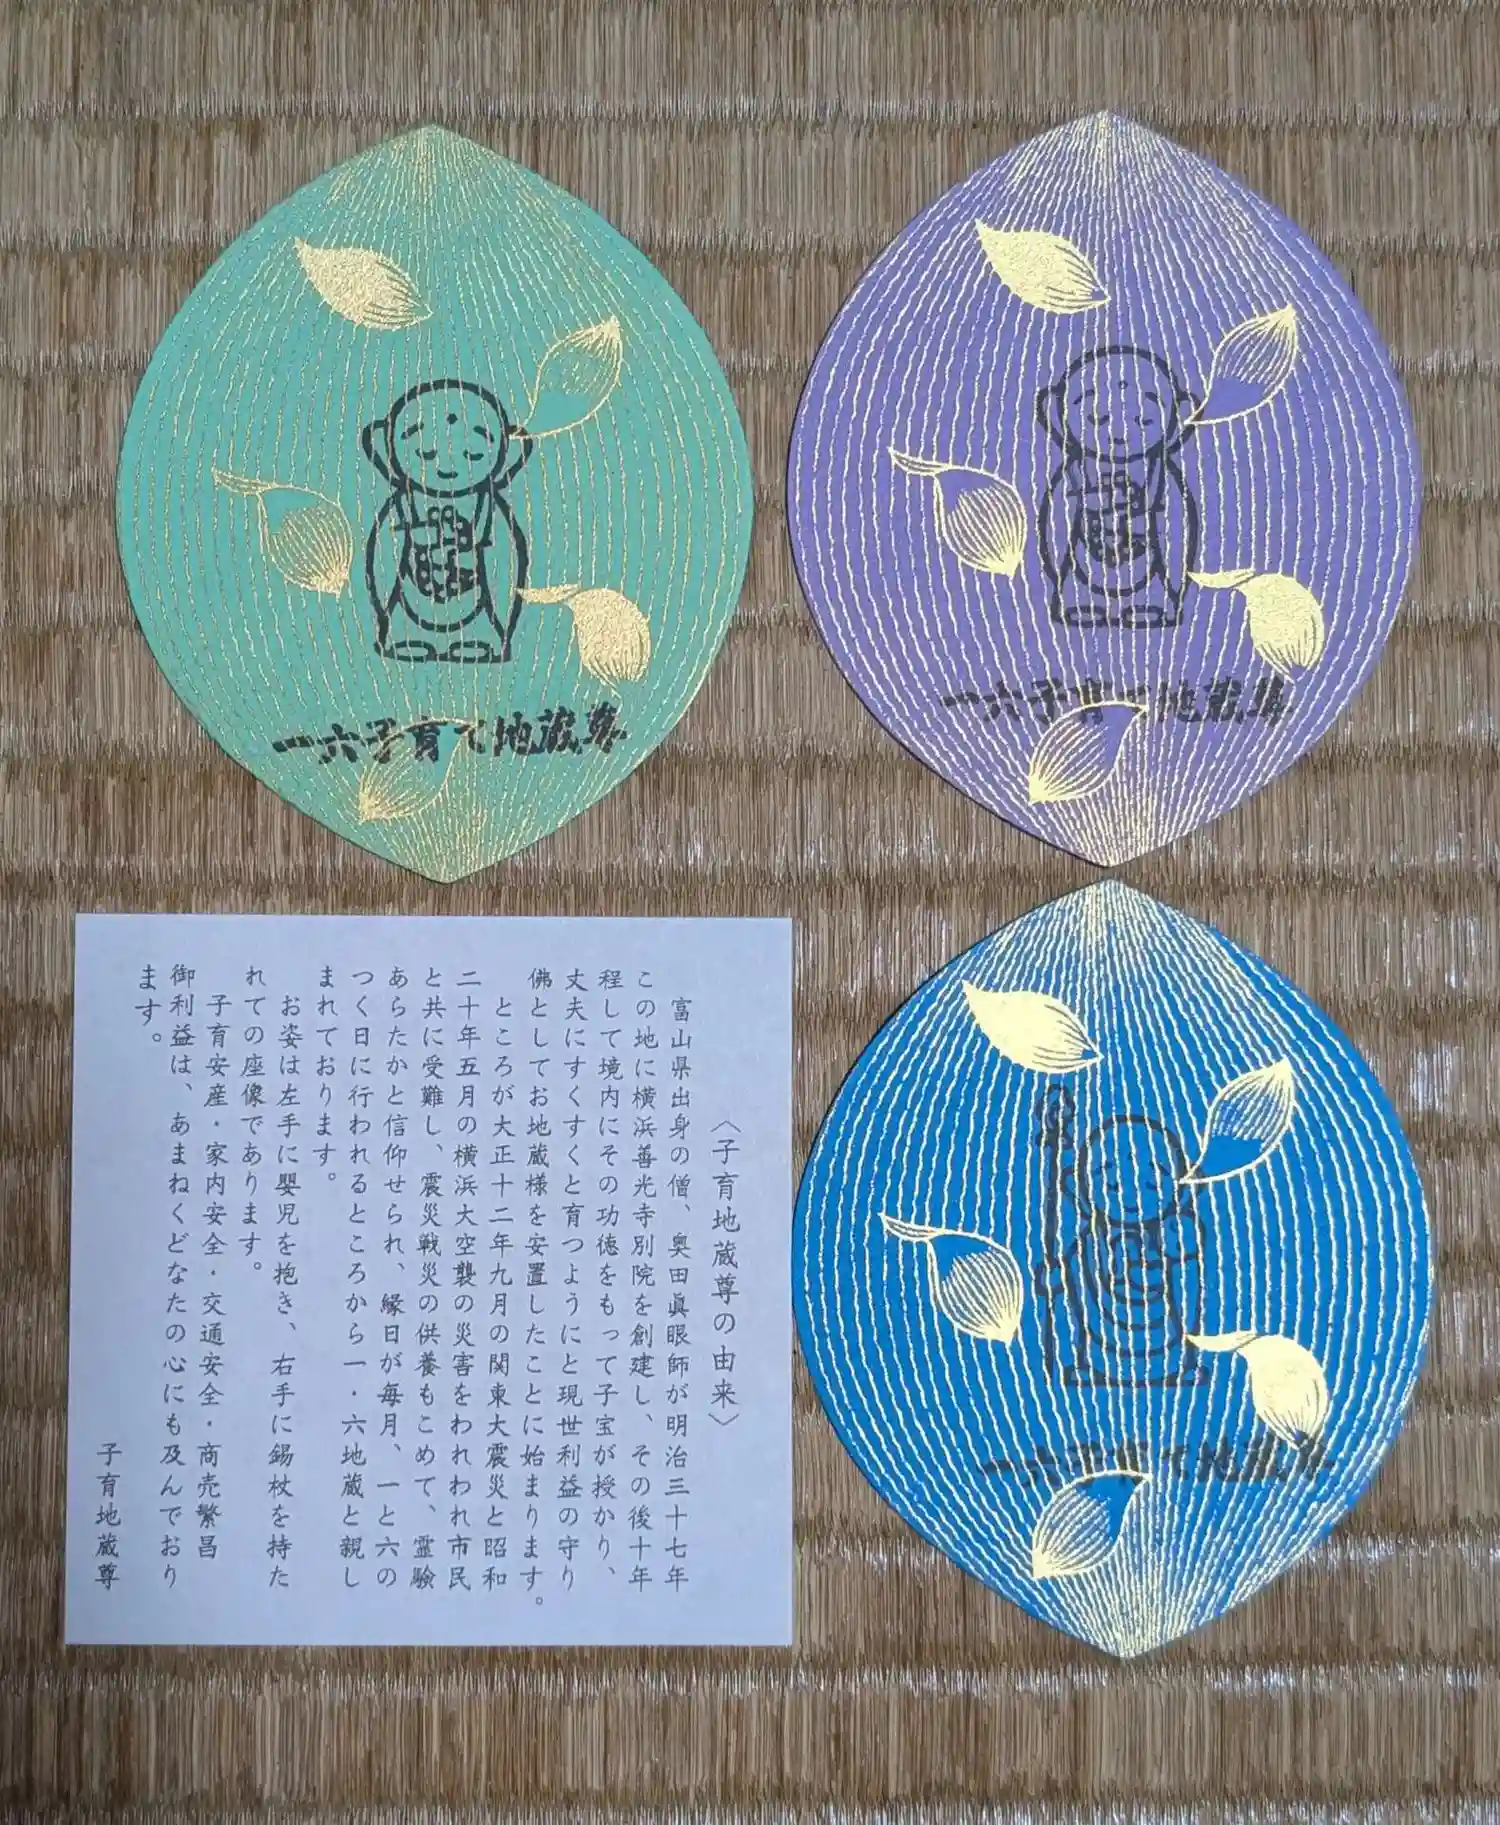 一六子育て地蔵尊
一六子育て地蔵尊
〈子育地蔵尊の由来〉
富山県出身の僧、奥田眞眼師が明治三十七年
この地に横浜善光寺別院を創建し、その後十年
程して境内にその功徳をもって子宝が授かり、
丈夫にすくすくと育つようにと現世利益の守り
佛としてお地蔵様を安置したことに始まります。
ところが大正十二年九月の関東大震災と昭和
二十年五月の横浜大空襲の災害をわれわれ市民
と共に受難し、震災戦災の供養もこめて、霊験
あらたかと信仰せられ、縁日が毎月、一と六の
つく日に行われるところから一・六地蔵と親し
まれております。
お姿は左手に嬰児を抱き、右手に錫杖を持た
れての座像であります。
子育安産・家内安全・交通安全・商売繁昌
御利益は、あまねくどなたの心にも及んでおり
ます。
子育地蔵尊
一六子育て地蔵尊